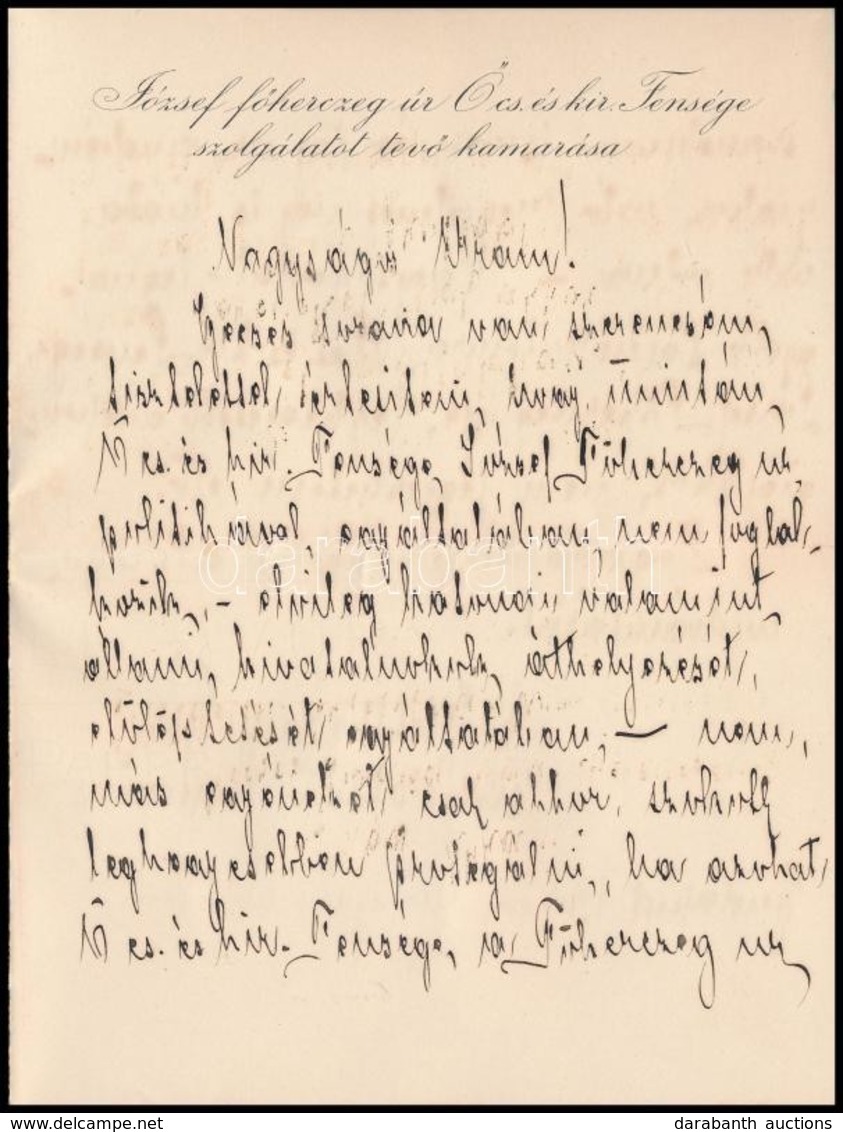 József főherczeg úr Ő cs. és kir. Fensége
szolgálatot tevő kamarása
Nagyságos Uram!
van szerencsém,
tisztelettel értesíteni, hogy miután
Ő cs. és kir. Fensége, József Főherczeg úr
politikával, egyáltalában nem foglal-
kozik, – elvileg katonai, valamint
állami, hivatalnokok, áthelyezését,
előléptetését, egyáltalában, – nem,
más egyéneket, csak akkor, szokott
leghegyesebben protegálni, ha azokat,
Ő cs. és kir. Fensége, a Főherczeg úr
darabanth
darabanth auctions